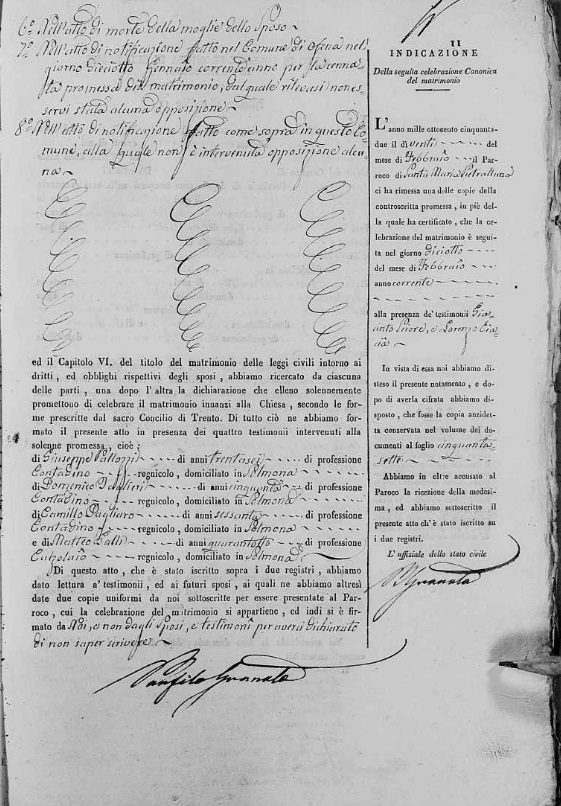 6º Nell'atto di morte della moglie dello Sposo
7º Nell'atto di notificazione fatto nel Comune di Ofena nel
giorno dieciotto Gennaio corrente anno per la cenna
ta promessa di matrimonio, dal quale rilevasi non es
servi stata alcuna opposizione
8º Nell'atto di notificazione fatto come sopra in questo Co
mune, alla quale non è intervenuta opposizione alcu
na
ed il Capitolo VI. del titolo del matrimonio delle leggi civili intorno ai
dritti, ed obblighi rispettivi degli sposi, abbiamo ricercato da ciascuna
delle parti, una dopo l'altra la dichiarazione che elleno solennemente
promettono di celebrare il matrimonio innanzi alla Chiesa, secondo le for-
me prescritte dal sacro Concilio di Trento. Di tutto ciò ne abbiamo for-
mato il presente atto in presenza dei quattro testimonii intervenuti alla
solenne promessa, cioè:
di Giuseppe di anni trentasei di professione
Contadino regnicolo, domiciliato in Solmona
di Domenico di anni cinquanta di professione
Contadino regnicolo, domiciliato in Solmona
di Camillo Pagliaro di anni sessanta di professione
Contadino regnicolo, domiciliato in Solmona
e di Matteo Galli di anni quarantotto di professione
Calzolaio regnicolo, domiciliato in Solmona
Di questo atto, che è stato iscritto sopra i due registri, abbiamo
dato lettura a' testimonii, ed ai futuri sposi, ai quali ne abbiamo altresì
date due copie uniformi da noi sottoscritte per essere presentate al Par-
roco, cui la celebrazione del matrimonio si appartiene, ed indi si è fir-
mato da Noi, e non dagli Sposi, e testimonî per avere dichiarato
di non saper scrivere
Panfilo Granata
11
INDICAZIONE
Della seguita celebrazione Canonica
del matrimonio
L'anno mille ottocento cinquanta-
due il dì venti del
mese di Febbraio il Par-
roco di Santa Maria Pietraltura
ci ha rimessa una delle copie della
controscritta promessa, in piè del-
la quale ha certificato, che la ce-
lebrazione del matrimonio è segui-
ta nel giorno diciotto
del mese di Febbraio
anno corrente
alla presenza de' testimonii Gia-
cinto e Lorenzo
In vista di essa noi abbiamo di-
steso il presente notamento, e do-
po di averla cifrata abbiamo di-
sposto, che fosse la copia anzidet-
ta conservata nel volume dei do-
cumenti al foglio cinquanta
sette
Abbiamo in oltre accusato al
Paroco la ricezione della medesi-
ma, ed abbiamo sottoscritto il
presente atto ch'è stato iscritto su
i due registri.
L' uffiziale dello stato civile
P Granata